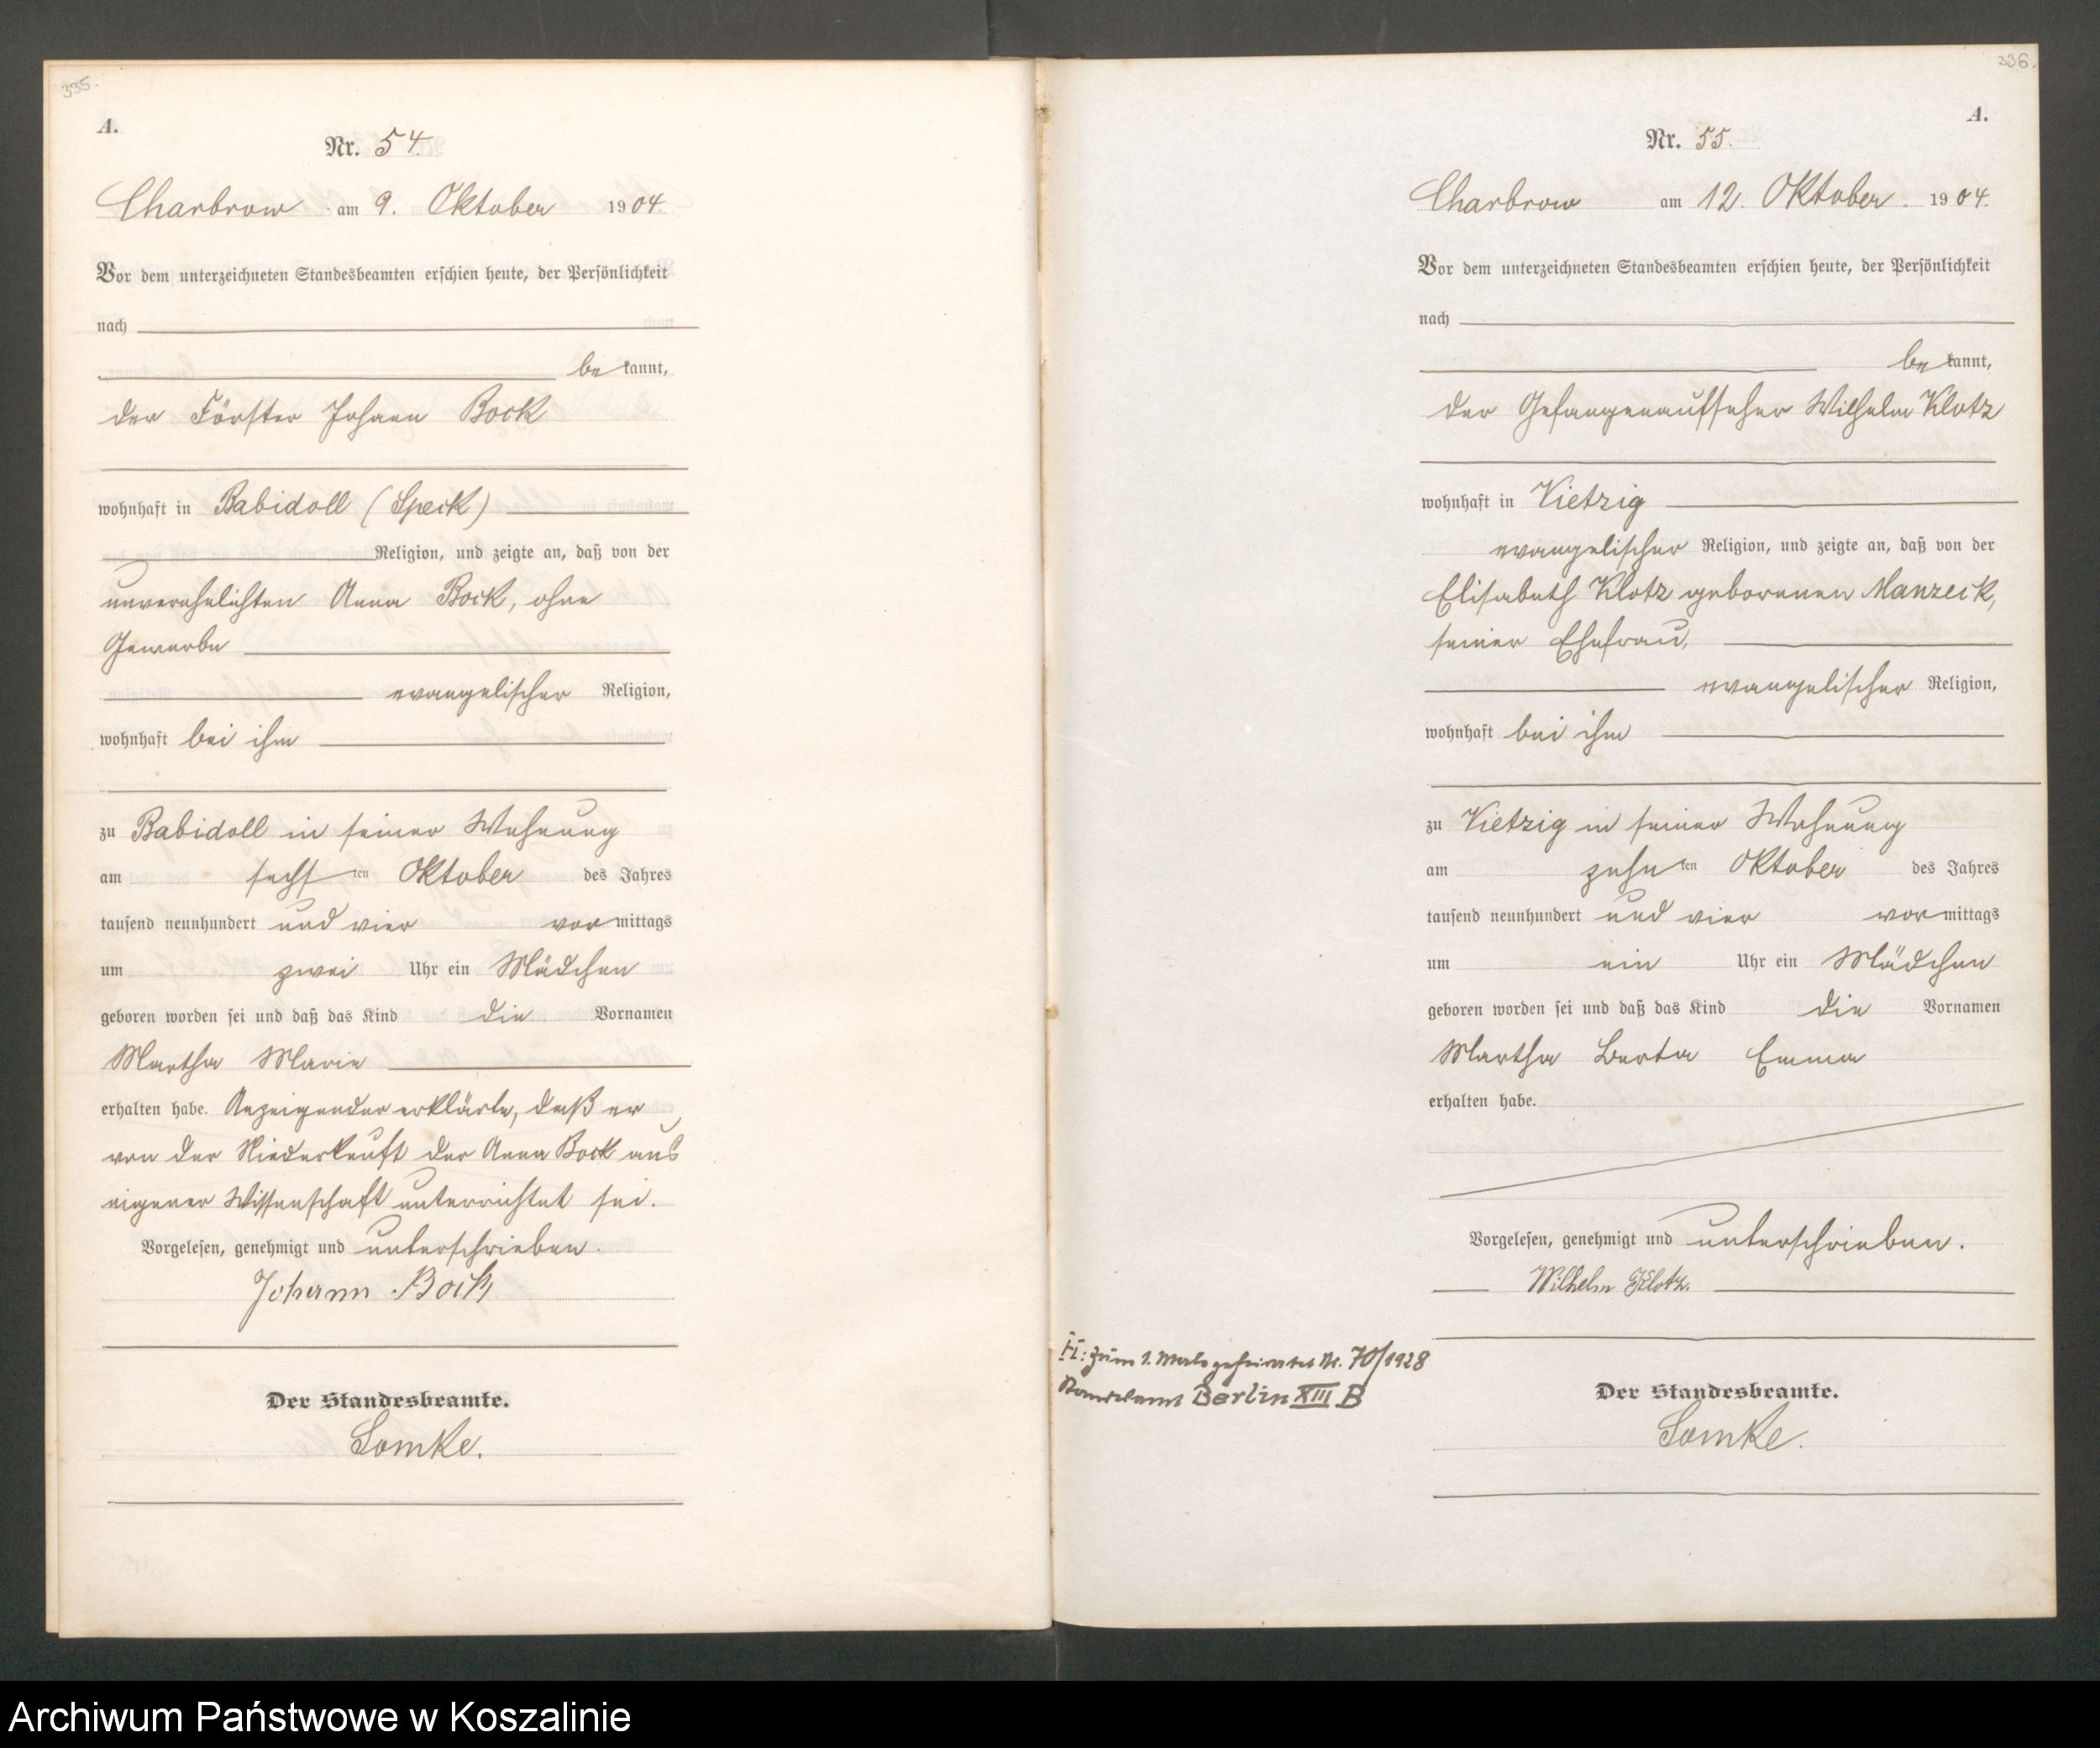 335.
A.
Nr. 54.
Charbrow am 9. Oktober 1904.
Vor dem unterzeichneten Standesbeamten erschien heute, der Persönlichkeit
nach
bekannt,
der Förster Johann Bock
wohnhaft in Babidoll (Speck)
Religion, und zeigte an, daß von der
unverehelichten Anna Bock, ohne
Gewerbe
evangelischer Religion,
wohnhaft bei ihm
zu Babidoll in seiner Wohnung
am sechsten Oktober des Jahres
tausend neunhundert und vier vormittags
um zwei Uhr ein Mädchen
geboren worden sei und daß das Kind die Vornamen
Martha Marie
erhalten habe. Anzeigender erklärte, daß er
von der Niederkunft der Anna Bock aus
eigener Wissenschaft unterrichtet sei.
Vorgelesen, genehmigt und unterschrieben.
Johann Bock
Der Standesbeamte.
Lomke.
336.
A.
Nr. 55.
Charbrow am 12. Oktober. 1904.
Vor dem unterzeichneten Standesbeamten erschien heute, der Persönlichkeit
nach
bekannt,
der Gefangenaufseher Wilhelm Klotz
wohnhaft in Vietzig
evangelischer Religion, und zeigte an, daß von der
Elisabeth Klotz geborenen Manzeck,
seiner Ehefrau,
evangelischer Religion,
wohnhaft bei ihm
zu Vietzig in seiner Wohnung
am zehnten Oktober des Jahres
tausend neunhundert und vier vormittags
um ein Uhr ein Mädchen
geboren worden sei und daß das Kind die Vornamen
Martha Berta Emma
erhalten habe.
Vorgelesen, genehmigt und unterschrieben.
Wilhelm Klotz.
H: zum 1. Male geheiratet Nr. 70/1928
Standesamt Berlin XIII B
Der Standesbeamte.
Lomke.
Archiwum Państwowe w Koszalinie